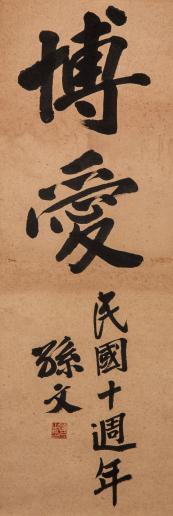 博愛
民國十週年
孫文